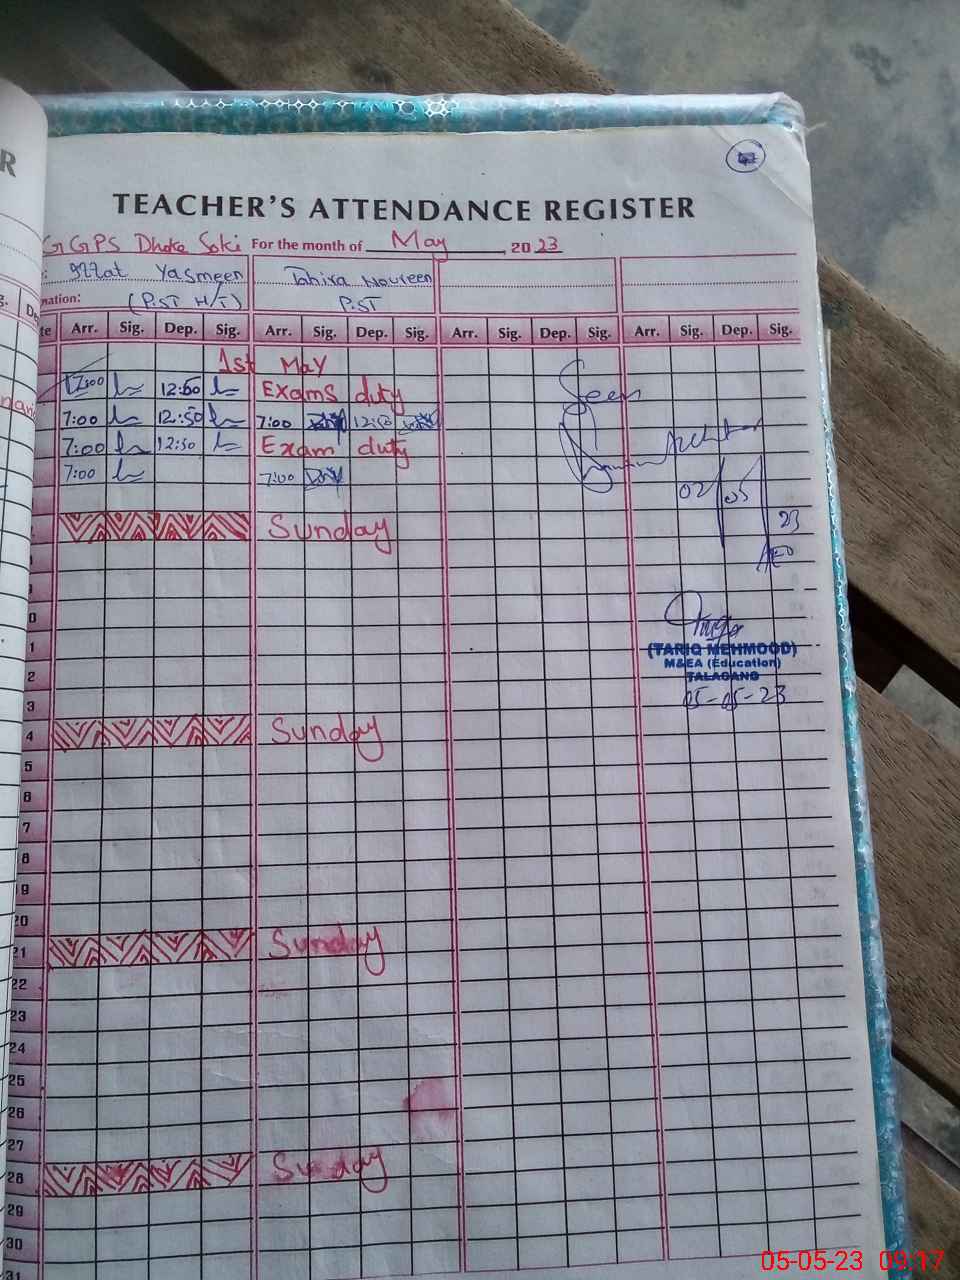 R
TEACHER'S ATTENDANCE REGISTER
GGPS Dhoke Soki For the month of May, 2023
Yasmeen Tahira Noureen
nation: (P.ST H/T) P.ST
Arr. Sig. Dep. Sig. Arr. Sig. Dep. Sig. Arr. Sig. Dep. Sig. Arr. Sig. Dep. Sig.
1st May
12:50 Exams duty
7:00 12:50 7:00 12:50
7:00 12:50 Exam duty
7:00 7:00
Seen
02/05
23
AEO
Sunday
(TARIQ MEHMOOD)
M&EA (Education)
TALAGANG
05-05-23
0
1
2
3
4 Sunday
5
6
7
8
19
20
21 Sunday
22
23
24
25
26
27
28 Sunday
29
30
31
05-05-23 09:17